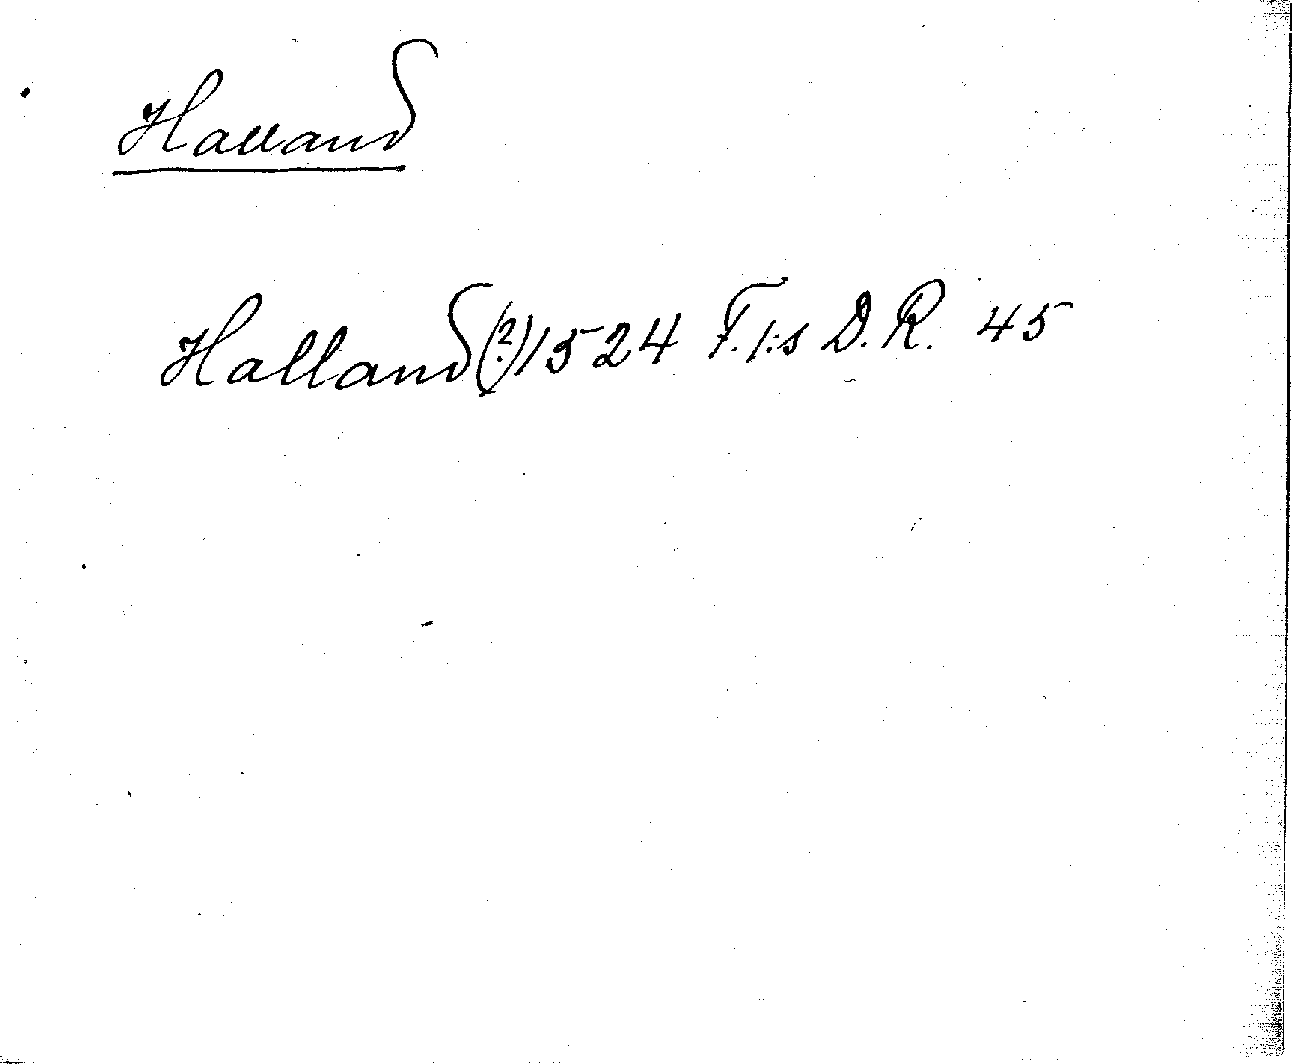 Halland
Halland (?) 1524 F. I:s D. R. 45